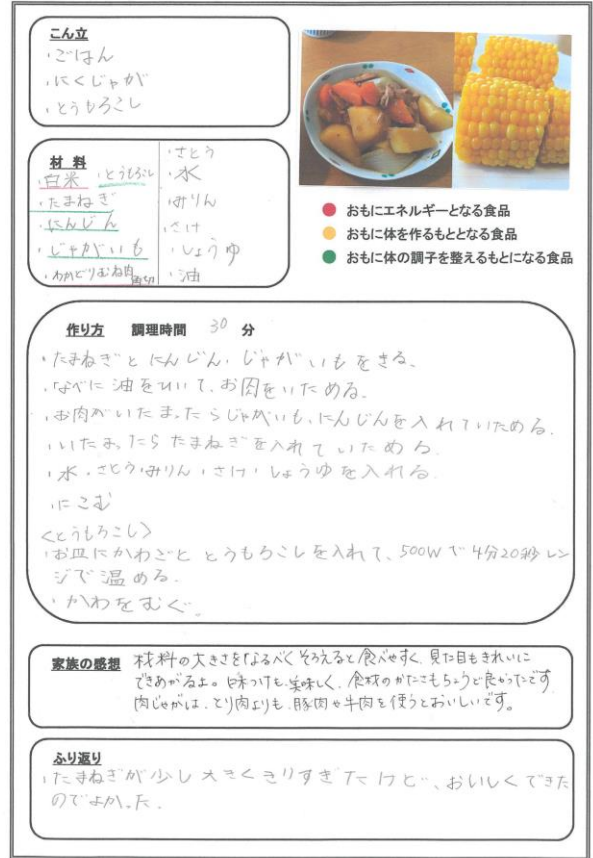 こん立
・ごはん
・にくじゃが
・とうもろこし
材料
・白米 ・とうもろこし
・たまねぎ
・にんじん
・じゃがいも
・わかどりむね肉角切
・さとう
・水
・みりん
・さけ
・しょうゆ
・油
おもにエネルギーとなる食品
おもに体を作るもととなる食品
おもに体の調子を整えるもとになる食品
作り方 調理時間 30 分
・たまねぎとにんじん・じゃがいもをきる。
・なべに油をひいて、お肉をいためる。
・お肉がいたまったらじゃがいも、にんじんを入れていためる。
・いたまったらたまねぎを入れていためる。
・水・さとう・みりん・さけ・しょうゆを入れる。
・にこむ
<とうもろこし>
・お皿にかわごととうもろこしを入れて、500Wで4分20秒レン
ジで温める。
・かわをむぐ。
家族の感想 材料の大きさをなるべくそろえると食べやすく、見た目もきれいに
できあがるよ。味つけも美味しく、食材のかたさもちょうど良かったです。
肉じゃがは、とり肉よりも、豚肉や牛肉を使うとおいしいです。
ふり返り
・たまねぎが少し大きくきりすぎたけど、おいしくできた
のでよかった。